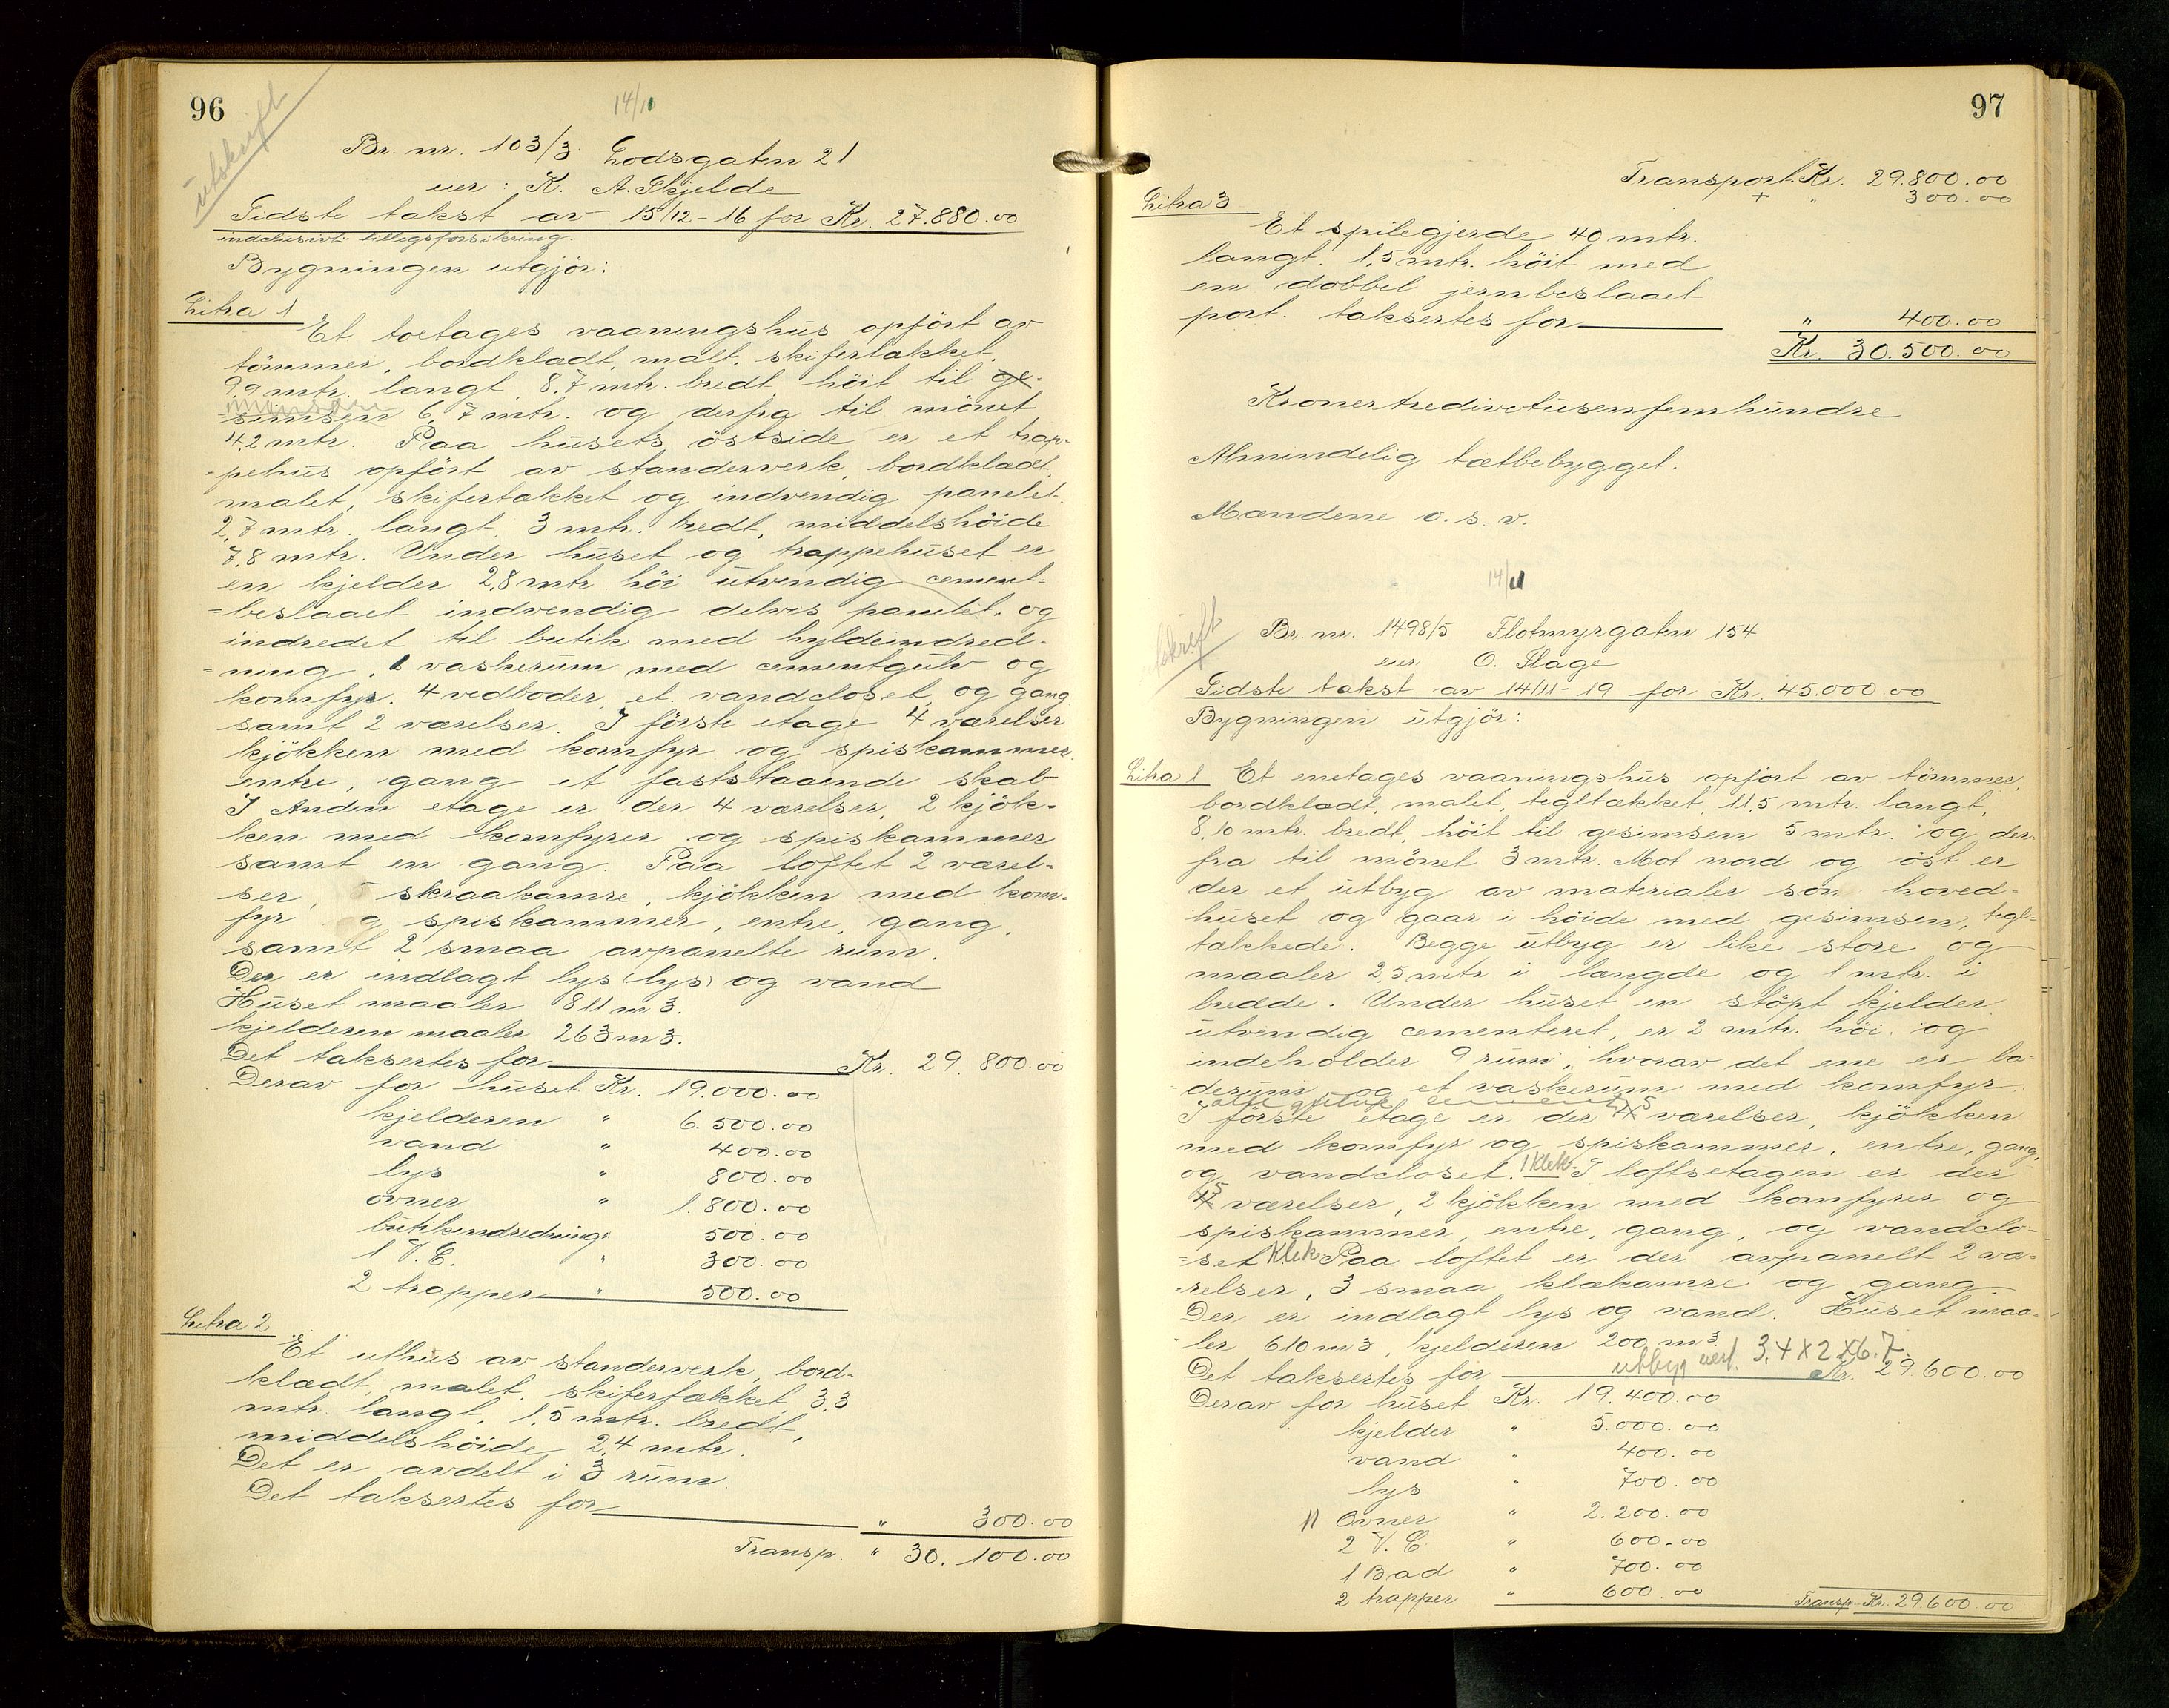 96
utskrift
14/11
Br. nr. 103/3. Lodsgaten 21
eier: K. A. Skjelde
Sidste takst av 15/12-16 for Kr. 27.880.00
inclusivt tillegsforsikring.
Bygningen utgjör:
Litra 1
Et toetages vaaningshus opfört av
tömmer, bordklædt, malt, skifertækket,
9,9 mtr. langt, 8,7 mtr. bredt, höit til ge-
=simsen 6,7 mtr. og derfra til mönet
4,2 mtr. Paa husets östside er et trap-
=pehus opfört av standerverk, bordklædt,
malet, skifertækket og indvendig panelet.
2,7 mtr. langt, 3 mtr. bredt, middelshöide
7,8 mtr. Under huset og trappehuset er
en kjelder 2,8 mtr höi utvendig cement-
=beslaaet indvendig delvis panelet og
indredet til butik med hyldeindred-
=ning, 1 vaskerum med cementgulv og
komfyr. 4 vedboder, et vandcloset, og gang
samt 2 værelser. I förste etage 4 værelser
kjökken med komfyr og spiskammer
entre, gang et faststaaende skab
I Anden etage er der 4 værelser, 2 kjök-
ken med komfyrer og spiskammer
samt en gang. Paa loftet 2 værel-
ser, 5 skraakamre, kjökken med kom-
fyr og spiskammer, entre, gang,
samt 2 smaa avpanelte rum.
Der er indlagt lys (lys) og vand
Huset maaler 811 m3.
kjelderen maaler 263 m3.
Det taksertes for Kr. 29.800.00
Derav for huset Kr. 19.000.00
kjelderen " 6.500.00
vand " 400.00
lys " 800.00
ovner " 1.800.00
butikindredning " 500.00
1 V.C. " 300.00
2 trapper " 500.00
Litra 2
Et uthus av standerverk, bord-
klædt, malet, skifertækket, 3,3
mtr. langt, 1,5 mtr. bredt,
middelshöide 2,4 mtr.
Det er avdelt i 3 rum.
Det taksertes for " 300.00
Transp. " 30.100.00
97
Transport Kr. 29.800.00
+ " 300.00
Litra 3
Et spilegjerde 40 mtr.
langt. 1,5 mtr. höit med
en dobbel jernbeslaaet
port. taksertes for " 400.00
Kr. 30.500.00
Kronertredivetusenfemhundre
Almindelig tætbebygget.
Mændene o. s. v.
14/11
skrift
Br. nr. 1498/5 Flotmyrgaten 154
eier O. Flage
Sidste takst av 14/11-19 for Kr. 45.000.00
Bygningen utgjör:
Litra 1 Et enetages vaaningshus opfört av tömmer,
bordklædt, malet, tegltækket, 11,5 mtr. langt,
8,10 mtr. bredt, höit til gesimsen 5 mtr. og der-
fra til mönet 3 mtr. Mot nord og öst er
der et utbyg av materialer som hoved-
huset og gaar i höide med gesimsen, tegl-
tækkede. Begge utbyg er like store og
maaler 2,5 mtr i længde og 1 mtr. i
bredde. Under huset en stöpt kjelder
utvendig cementeret, er 2 mtr. höi og
indeholder 9 rum, hvorav det ene er ba-
derum og et vaskerum med komfyr
alle gulve cement
I förste etage er der 4 5 værelser, kjökken
med komfyr og spiskammer, entre, gang,
og vandcloset. 1 klek. I loftsetagen er der
4 5 værelser, 2 kjökken med komfyrer og
spiskammer, entre, gang, og vandclo-
=set Klek Paa loftet er der avpanelt 2 væ-
relser, 3 smaa klækamre og gang
Der er indlagt lys og vand. Huset maa-
ler 610 m3, kjelderen 200 m3
utbyg vest. 3,4 X 2 X 6.7
Det taksertes for Kr. 29.600.00
Derav for huset Kr. 19.400.00
kjelder " 5.000.00
vand " 400.00
lys " 700.00
11 Ovner " 2.200.00
2 V.C. " 600.00
1 Bad " 700.00
2 trapper " 600.00
Transp. Kr. 29.600.00